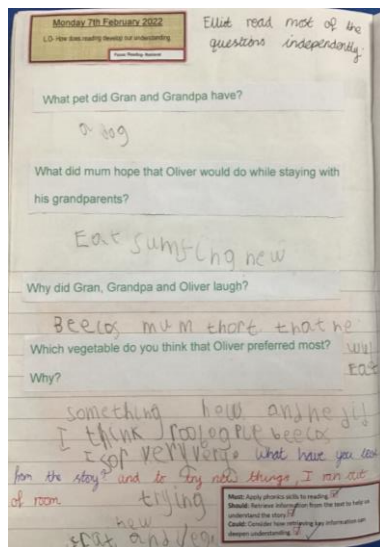 Monday 7th February 2022
L.O- How does reading develop our understanding
Focus: Reading
Elliot read most of the
questions independently.
What pet did Gran and Grandpa have?
a dog
What did mum hope that Oliver would do while staying with
his grandparents?
Eat sumfing new
Why did Gran, Grandpa and Oliver laugh?
Beecos mum thort that he
Which vegetable do you think that Oliver preferred most?
Why?
wul
Eat
something new and he did
I think beecos
I
what have you
from the story? and to try new things, I ran out
of room
trying
new
and
Must: Apply phonics skills to reading
Should: Retrieve information from the text to help us
understand the story.
Could: Consider how retrieving key information can
deepen understanding.